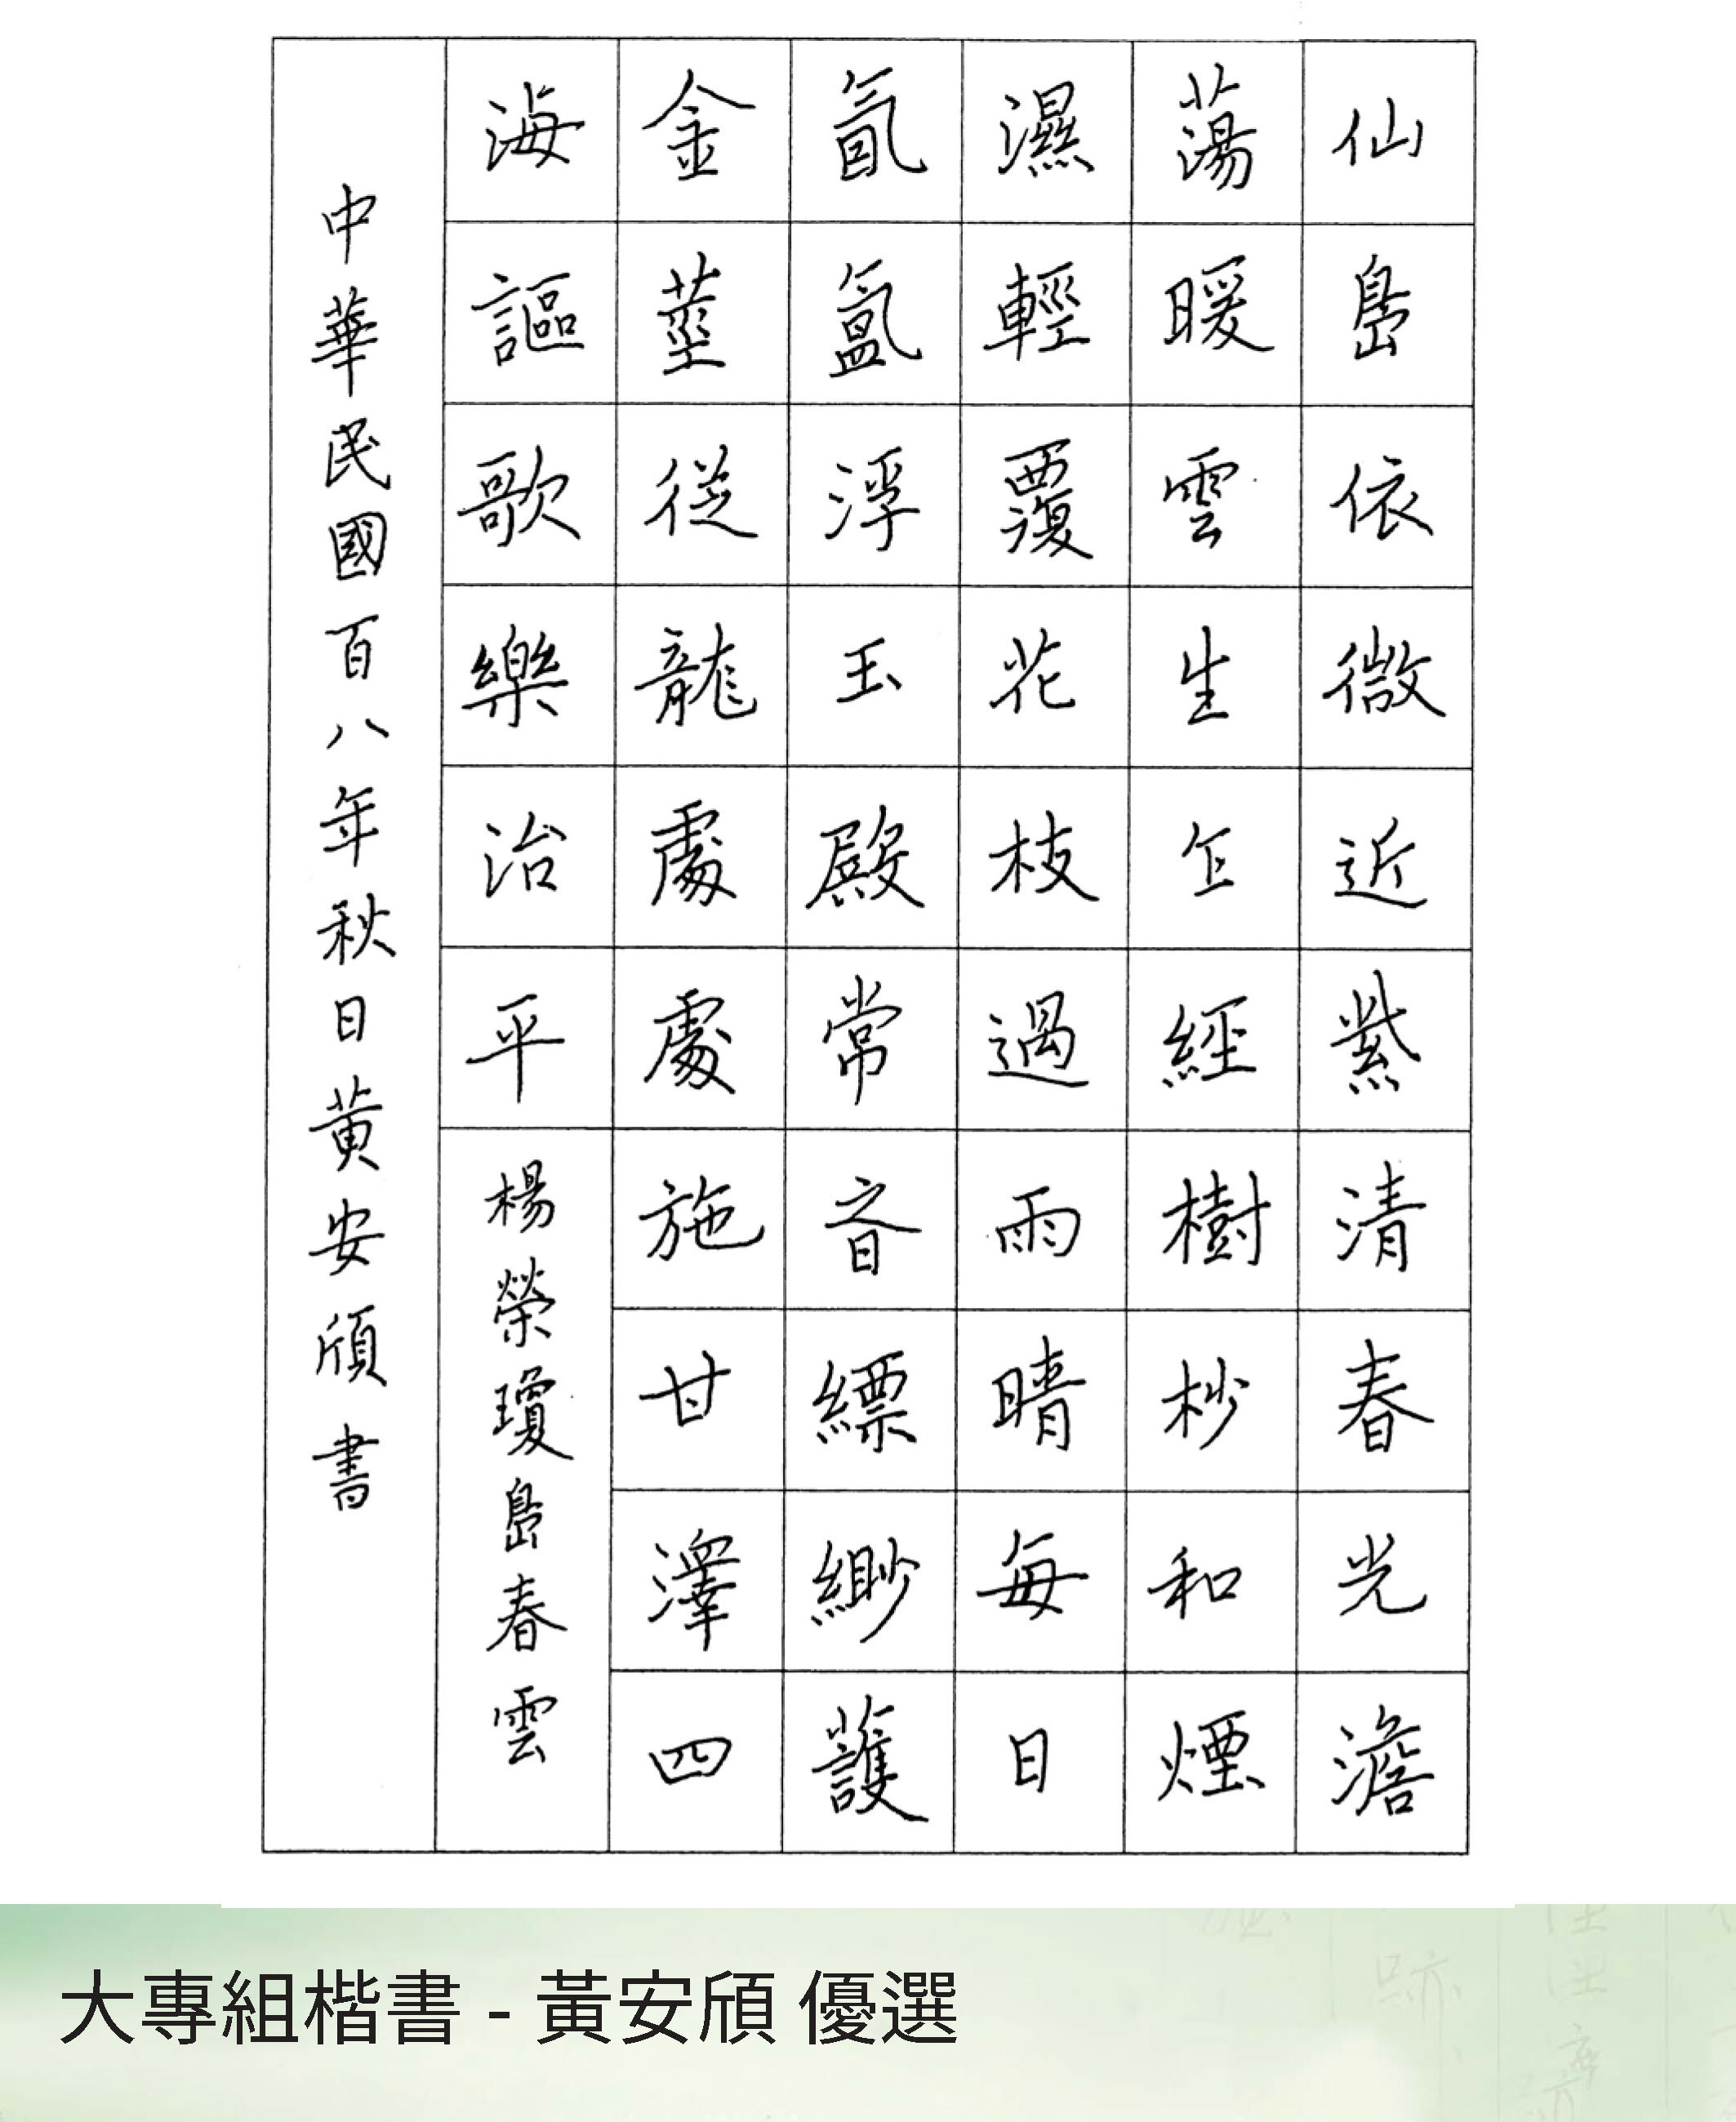 仙島依微近紫清春光澹
蕩暖雲生乍經樹杪和煙
濕輕覆花枝過雨晴每日
氤氳浮玉殿常旹縹緲護
金莖從龍處處施甘澤四
海謳歌樂治平 楊榮瓊島春雲
中華民國百八年秋日黃安頎書
大專組楷書 - 黃安頎 優選